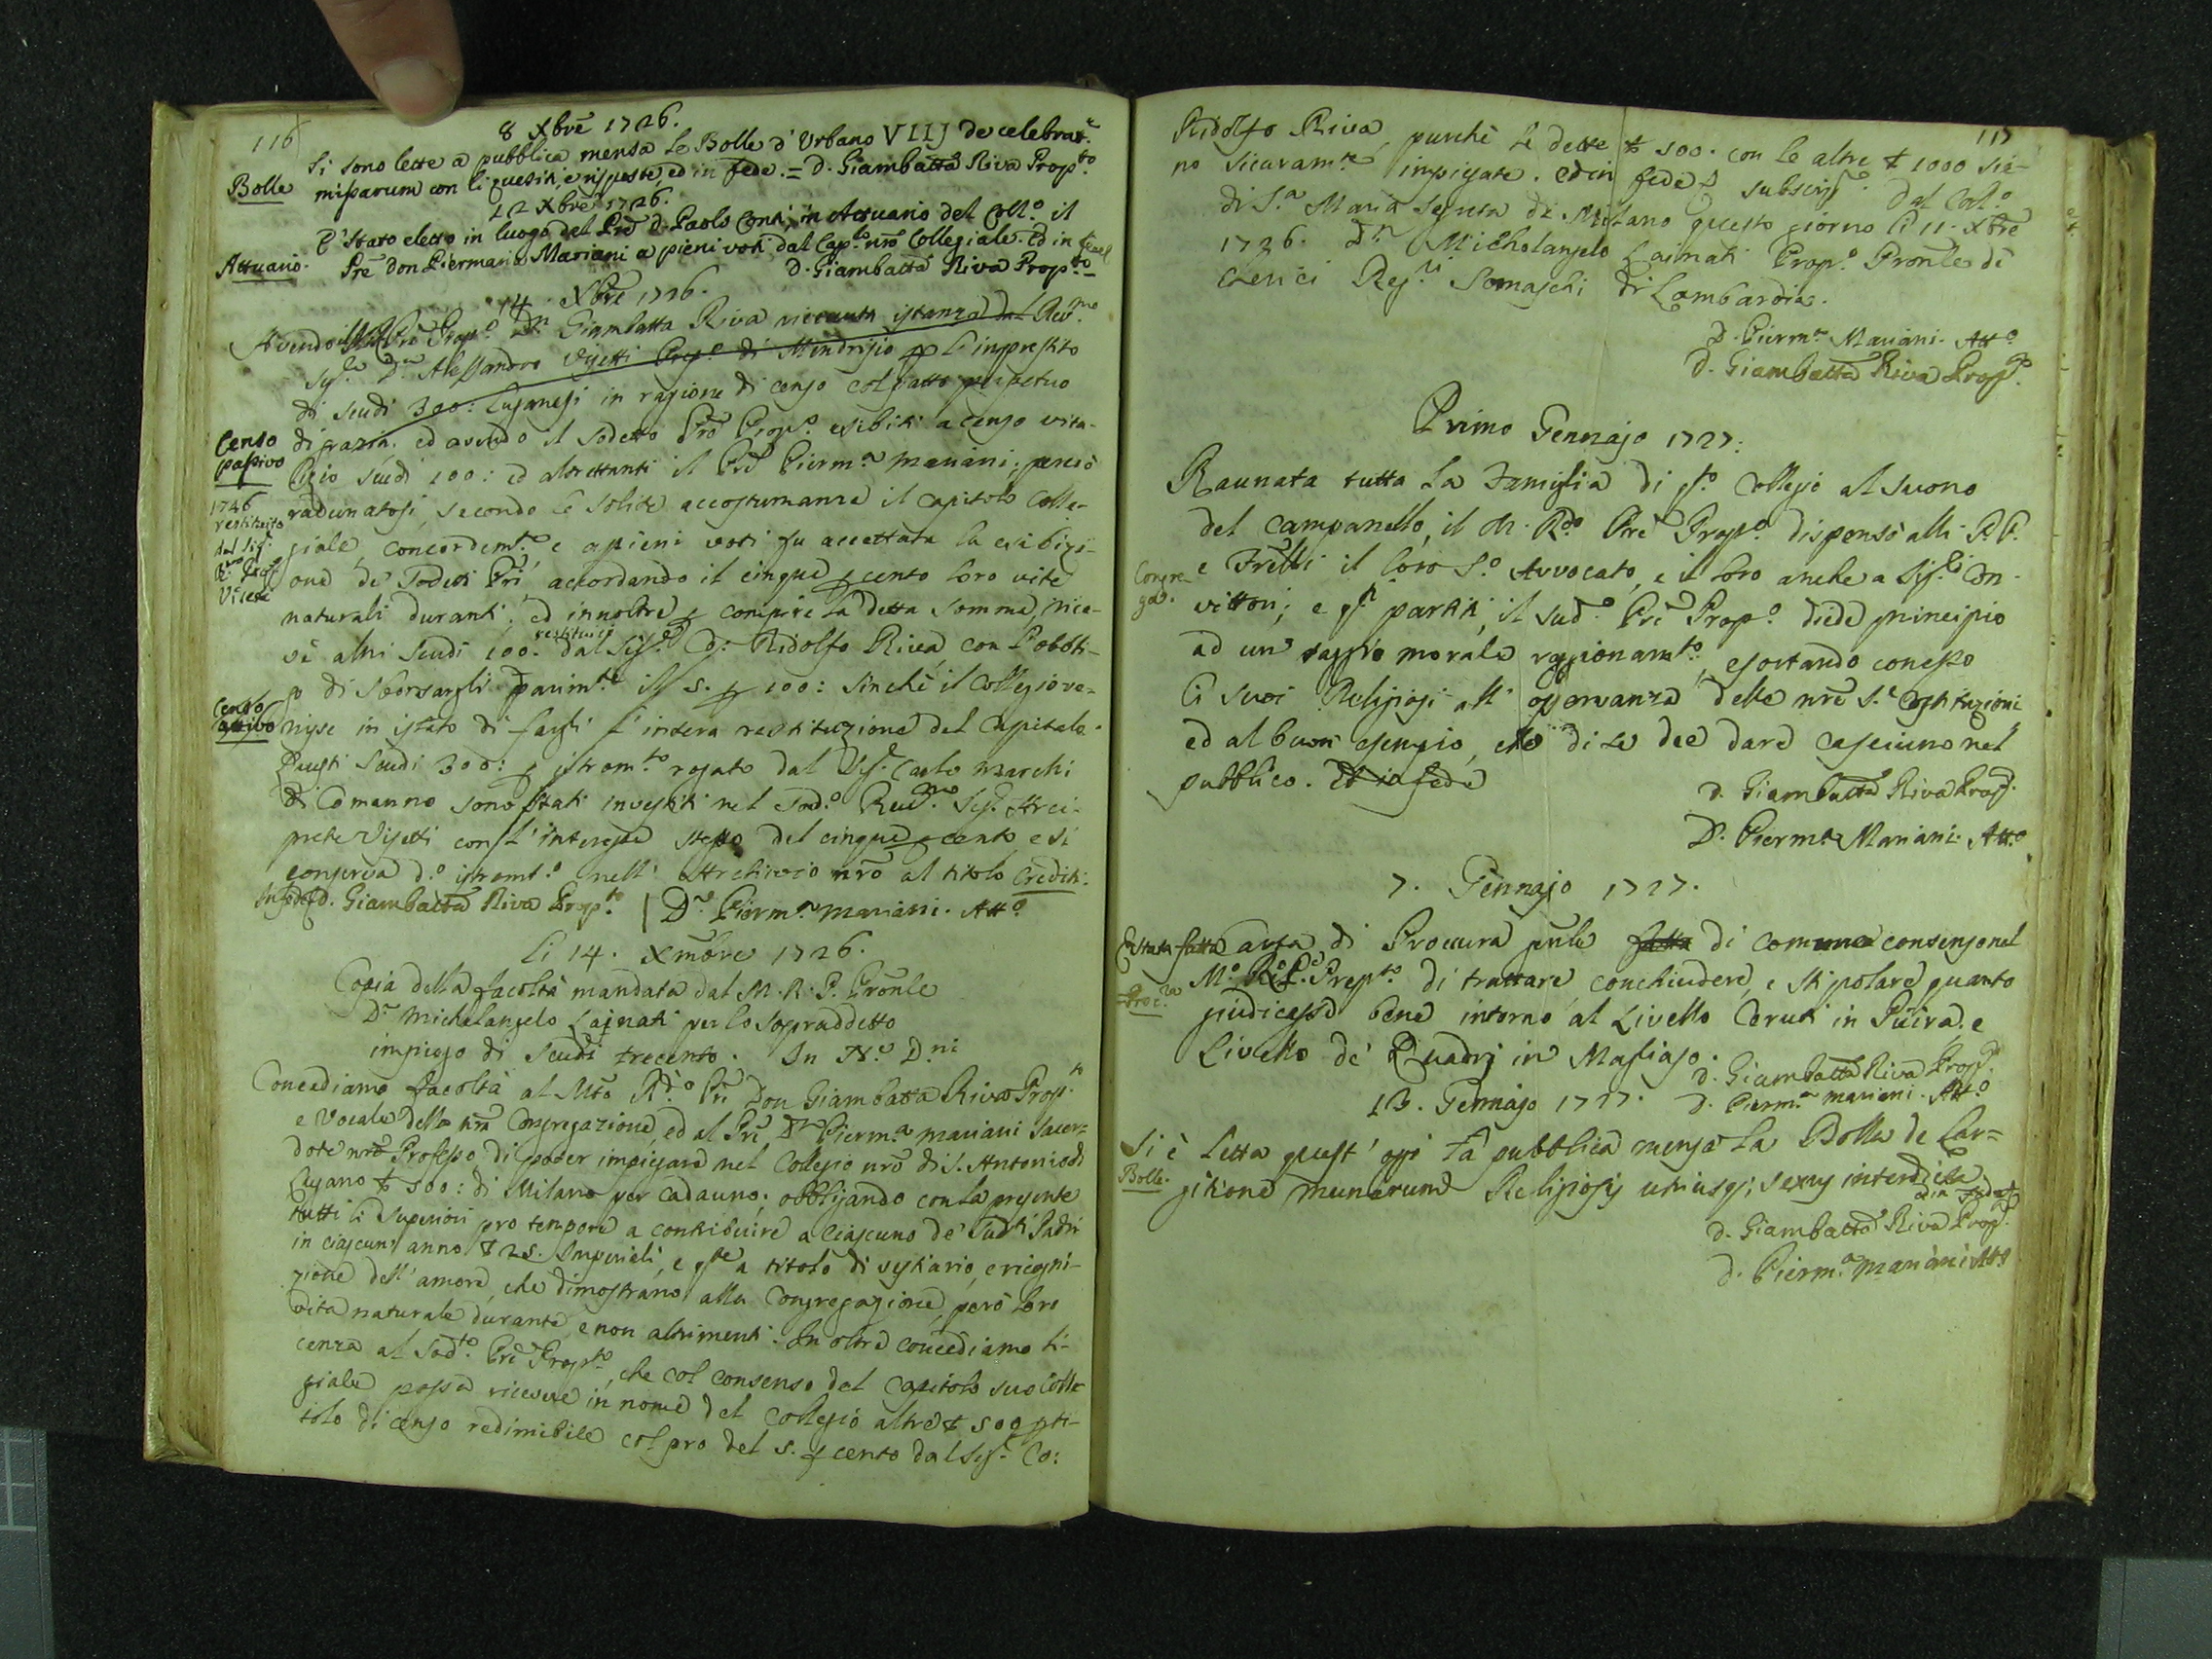 116
8 Xbrẽ 1726.
Si sono lette a pubblica mensa le Bolle d'Urbano VIIJ de celebrat.e
Bolle
missarum con li quesiti, e risposte, ed in fede. = D. Giambattã Riva Prop.to
12 Xbrẽ 1726.
E' stato eletto in luogo del Prẽ D. Paolo Conti, in Attuario del Coll.o il
Attuario.
Prẽ don Piermaria Mariani a pieni voti dal Cap.lo nrõ Collegiale. Ed in fede
D. Giambattã Riva Prop.to
14. Xbrẽ 1726.
Avendo il Prẽ Prop.o Dn Giambatta Riva istanza dal Rev.mo
Sig.e D.n Alessandro Visetti Prop.o di Mendrisio p l'imprestito
di scudi 300: Luganesi in ragione di censo col patto perpetuo
Censo passivo
di grazia; ed avendo il sodetto Prẽ Prop.o esibiti a censo vita-
lizio scudi 100: ed altrettanti il Prẽ Pierm.a Mariani; perciò
1746 restituito dal Sig.
radunatosi, secondo le solite accostumanze il Capitolo Colle-
giale, concordem.te e a pieni voti fu accettata la esibizi-
one de' sodetti Pri, accordando il cinque p cento loro vite
naturali duranti; ed innoltre p compire la detta somma, rice-
restituiti
vè altri scudi 100. dal Sig.r D. Ridolfo Riva, con l'obbli-
go di sborsargli parim.te il 5. p 100: sinchè il Collegio ve-
Censo attivo
nisse in istato di fargli l'intera restituzione del Capitale.
Questi scudi 300: p istrom.to rogato dal Sig.r Carlo Marchi
di Comanno sono stati investiti nel sod.o Rev.mo Sig.r Arci-
prete Visetti con l'interesse stesso del cinque p cento, e si
conserva d.o istromt.o nell' Archivio nrõ al titolo Crediti.
In fede D. Giambattã Riva Prop.to | D.n Pierm.a Mariani. Att.o
Li 14. Xmbre 1726.
Copia della facoltà mandata dal M. R. P. Pronle
D.n Michelangelo Lainati per lo sopraddetto
impiego di scudi trecento. In N.e D.ni
Concediamo facoltà al Mto R.do Prẽ Don Giambatta Riva Prop.to
e Vocale della nrã Congregazione, ed al Prẽ Dn Pierm.a Mariani Sacer=
dote nrõ Professo di poder impiegare nel Collegio nrõ di S. Antonio di
Lugano ₤ 500: di Milano per cadauno; obbligando con la presente
tutti li Superiori pro tempore a contribuire a ciascuno de' sudti Padri
in ciascun' anno ₤ 25. Imperiali, e qste a titolo di vestiario, e ricogni-
zione dell' amore, che dimostrano alla Congregazione, però loro
vita naturale durante, e non altrimenti. In oltre concediamo li-
cenza al sod.to Prẽ Prop.to, che col consenso del Capitolo suo Colle-
giale possa ricevere in nome del Collegio altre ₤ 500 p ti-
tolo di censo redimibile col pro del 5. p cento dal Sig.r Co:
117
Ridolfo Riva, purchè le dette ₤ 500. con le altre ₤ 1000 sie-
no sicuram.te impiegate. Ed in fede subscrip.o Dal Col.o
di S.a Maria Segreta di Milano questo giorno li 11. Xbre
1726. D.n Micholangelo Lainati Prop.o Pronle de
Cherici Reg.ri Somaschi di Lombardia.
D. Pierm.a Mariani. Att.o
D. Giambattã Riva Prop.to
Primo Gennajo 1727.
Raunata tutta la Famiglia di qsto Collegio al suono
del campanello, il M. Rdo Prẽ Prop.o dispensò alli P.P.
Congre-
gaz.
e Frelli il loro S.o Avvocato, e il loro anche a Sig.ri Con-
vittori; e qsti partiti, il sud.o Prẽ Prop.o diede principio
ad un saggio morale ragionam.to, esortando con esso
li suoi Religiosi all' osservanza delle nrẽ S.e Costituzioni
ed al buon esempio, che di se dee dare ciascuno nel
pubblico. Ed in fede
D. Giambattã Riva Prop.
D. Pierm.a Mariani. Att.o
7. Gennajo 1727.
E stata fatta carta di Procura pnle fatta di comune consenso nel
Proc.a
M.o R.o P.e Prep.to di trattare conchiudere, e stipolare quanto
giudicasse bene intorno al Livello Ceruti in Puira, e
Livello de' Quadrj in Magliaso.
D. Giambattã Riva Prop.
D. Pierm.a Mariani. Att.o
13. Gennajo 1727.
Si è letta quest' oggi a pubblica mensa la Bolla de Lar=
Bolle.
gitione munerum Religiosis utriusq; sexus interdicta
ed in fede
D. Giambattã Riva Prop.
D. Pierm.a Mariani Att.o